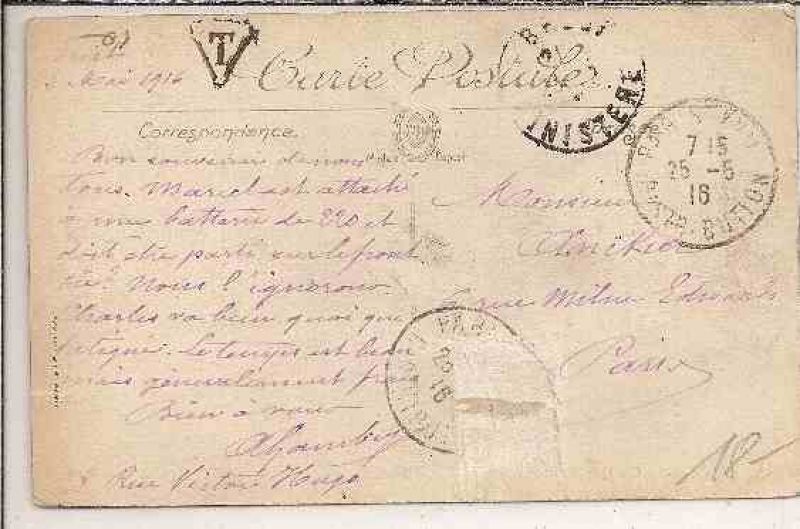 T
Mai 1916
Carte Postale
Correspondance
Bon souvenir de nous
tous. Marcel est attaché
à une batterie de 220 et
doit être parti sur le front
Nous l'ignorons.
Charles va bien quoi que
fatigué. Le temps est beau
mais généralement frais
Bien à vous
Rue Victor Hugo
Monsieur
rue Milne Edwards
Paris
INISTERE
7 15
25 - 5
16
16
18